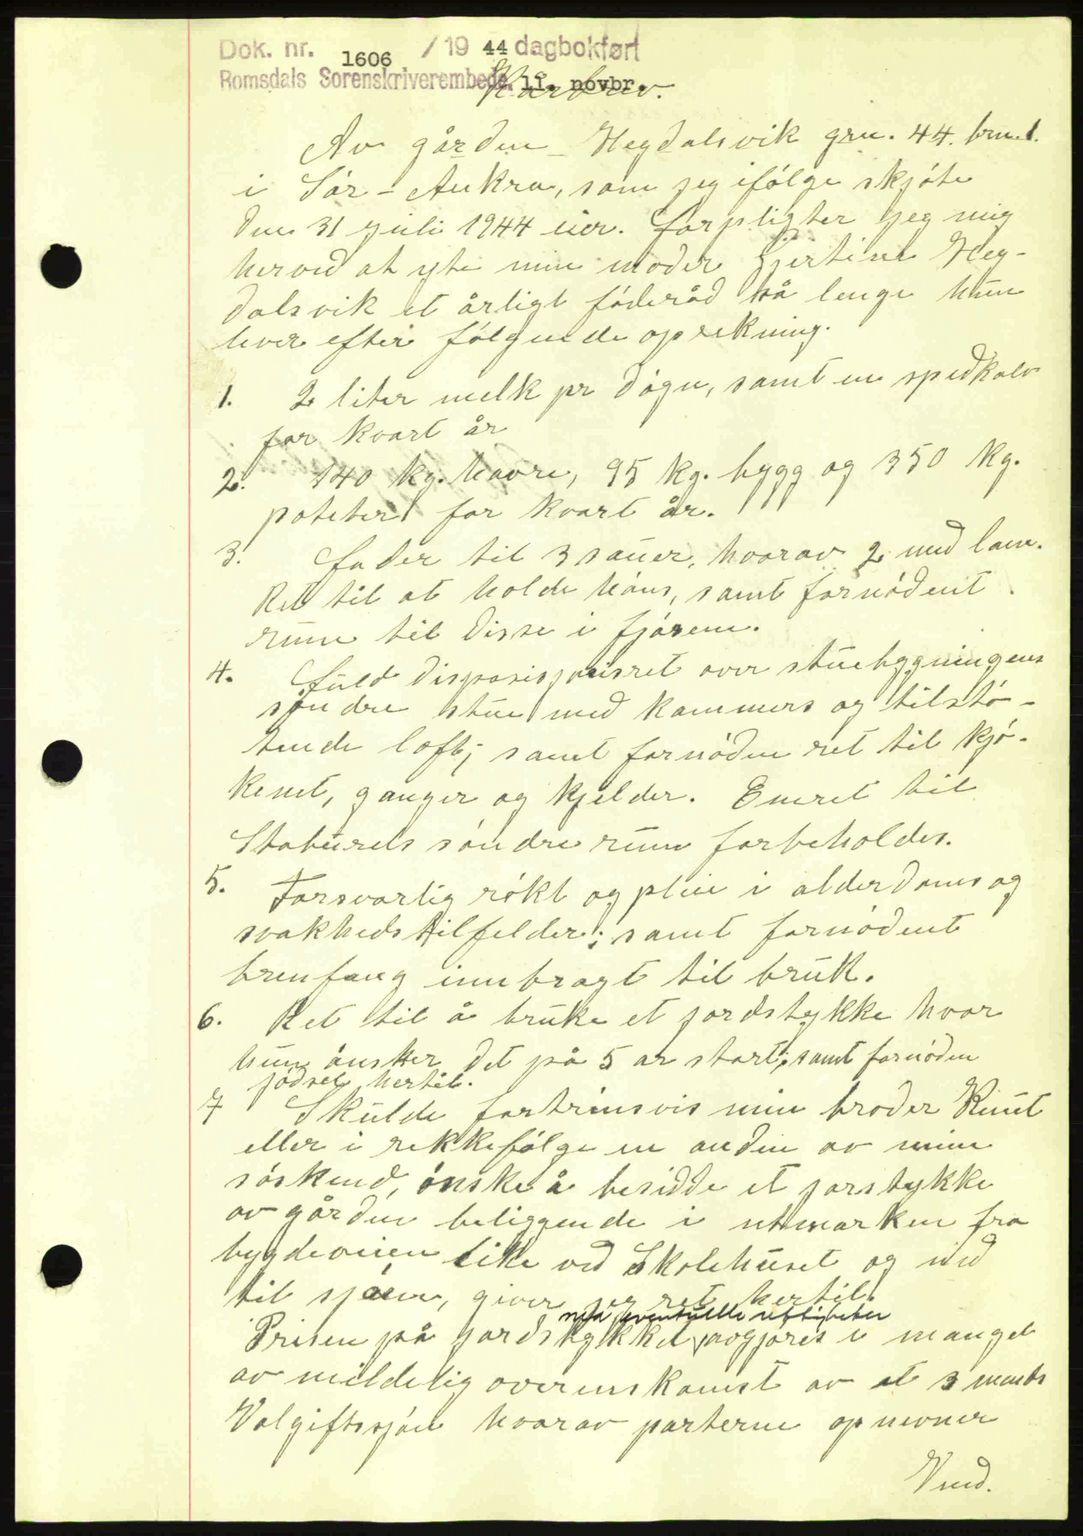 Dok. nr. 1606 / 19 44 dagbokført
Romsdals Sorenskriverembede. 11. novbr.
Kårbrev.
Av gården Hegdalsvik grn. 44. brn. 1.
i Sör-Aukra, som jeg ifölge skjöte
den 31 juli 1944 eier. forpligter jeg mig
herved at yte min moder Hegdalsvik
dalsvik et årligt föderåd så lenge hun
lever efter fölgende oprekning.
1. 2 liter melk pr dögn, samt en spedkalv
for kvart år
2. 140 kg. havre, 95 kg. bygg og 350 kg.
poteter for kvart år.
3. Foder til 3 sauer, hvorav 2 med lam.
Ret til at holde höns, samt fornödent
rum til disse i fjösene.
4. Fuld disposisjonsret over stuebygningens
söndre stue med kammers og tilstö-
tende loft; samt fornöden ret til kjö-
kenet, ganger og kjelder. Eneret til
Staburets söndre rum forbeholdes.
5. Forsvarlig rökt og pleie i alderdoms og
svakhedstilfelder; samt fornödent
brenfang innbragt til bruk.
6. Ret til å bruke et jordstykke hvor
hun önsker det på 5 ar stort; samt fornöden
jödsel hertil.
7 Skulde fortrinsvis min broder Knut
eller i rekkefölge en anden av mine
söskend, önske å besidde et jorstykke
av gården beliggende i utmarken fra
bygdeveien like ved Skolehuset og ned
til sjöen, giver jeg ret hertil.
med eventuelle rettigheter
Prisen på jordstykket avgjöres i mangel
av mindelig overenskomst av et 3 mands
Volgiftssjön hvorav parterne opnevner
Vend.